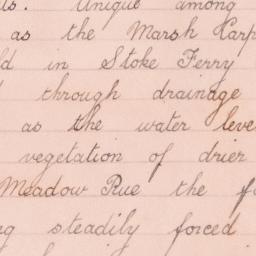 Unique among
as the Marsh Carp
in Stoke Ferry
through drainage
as the water leve
vegetation of drier
Meadow Rue the f
steadily forced